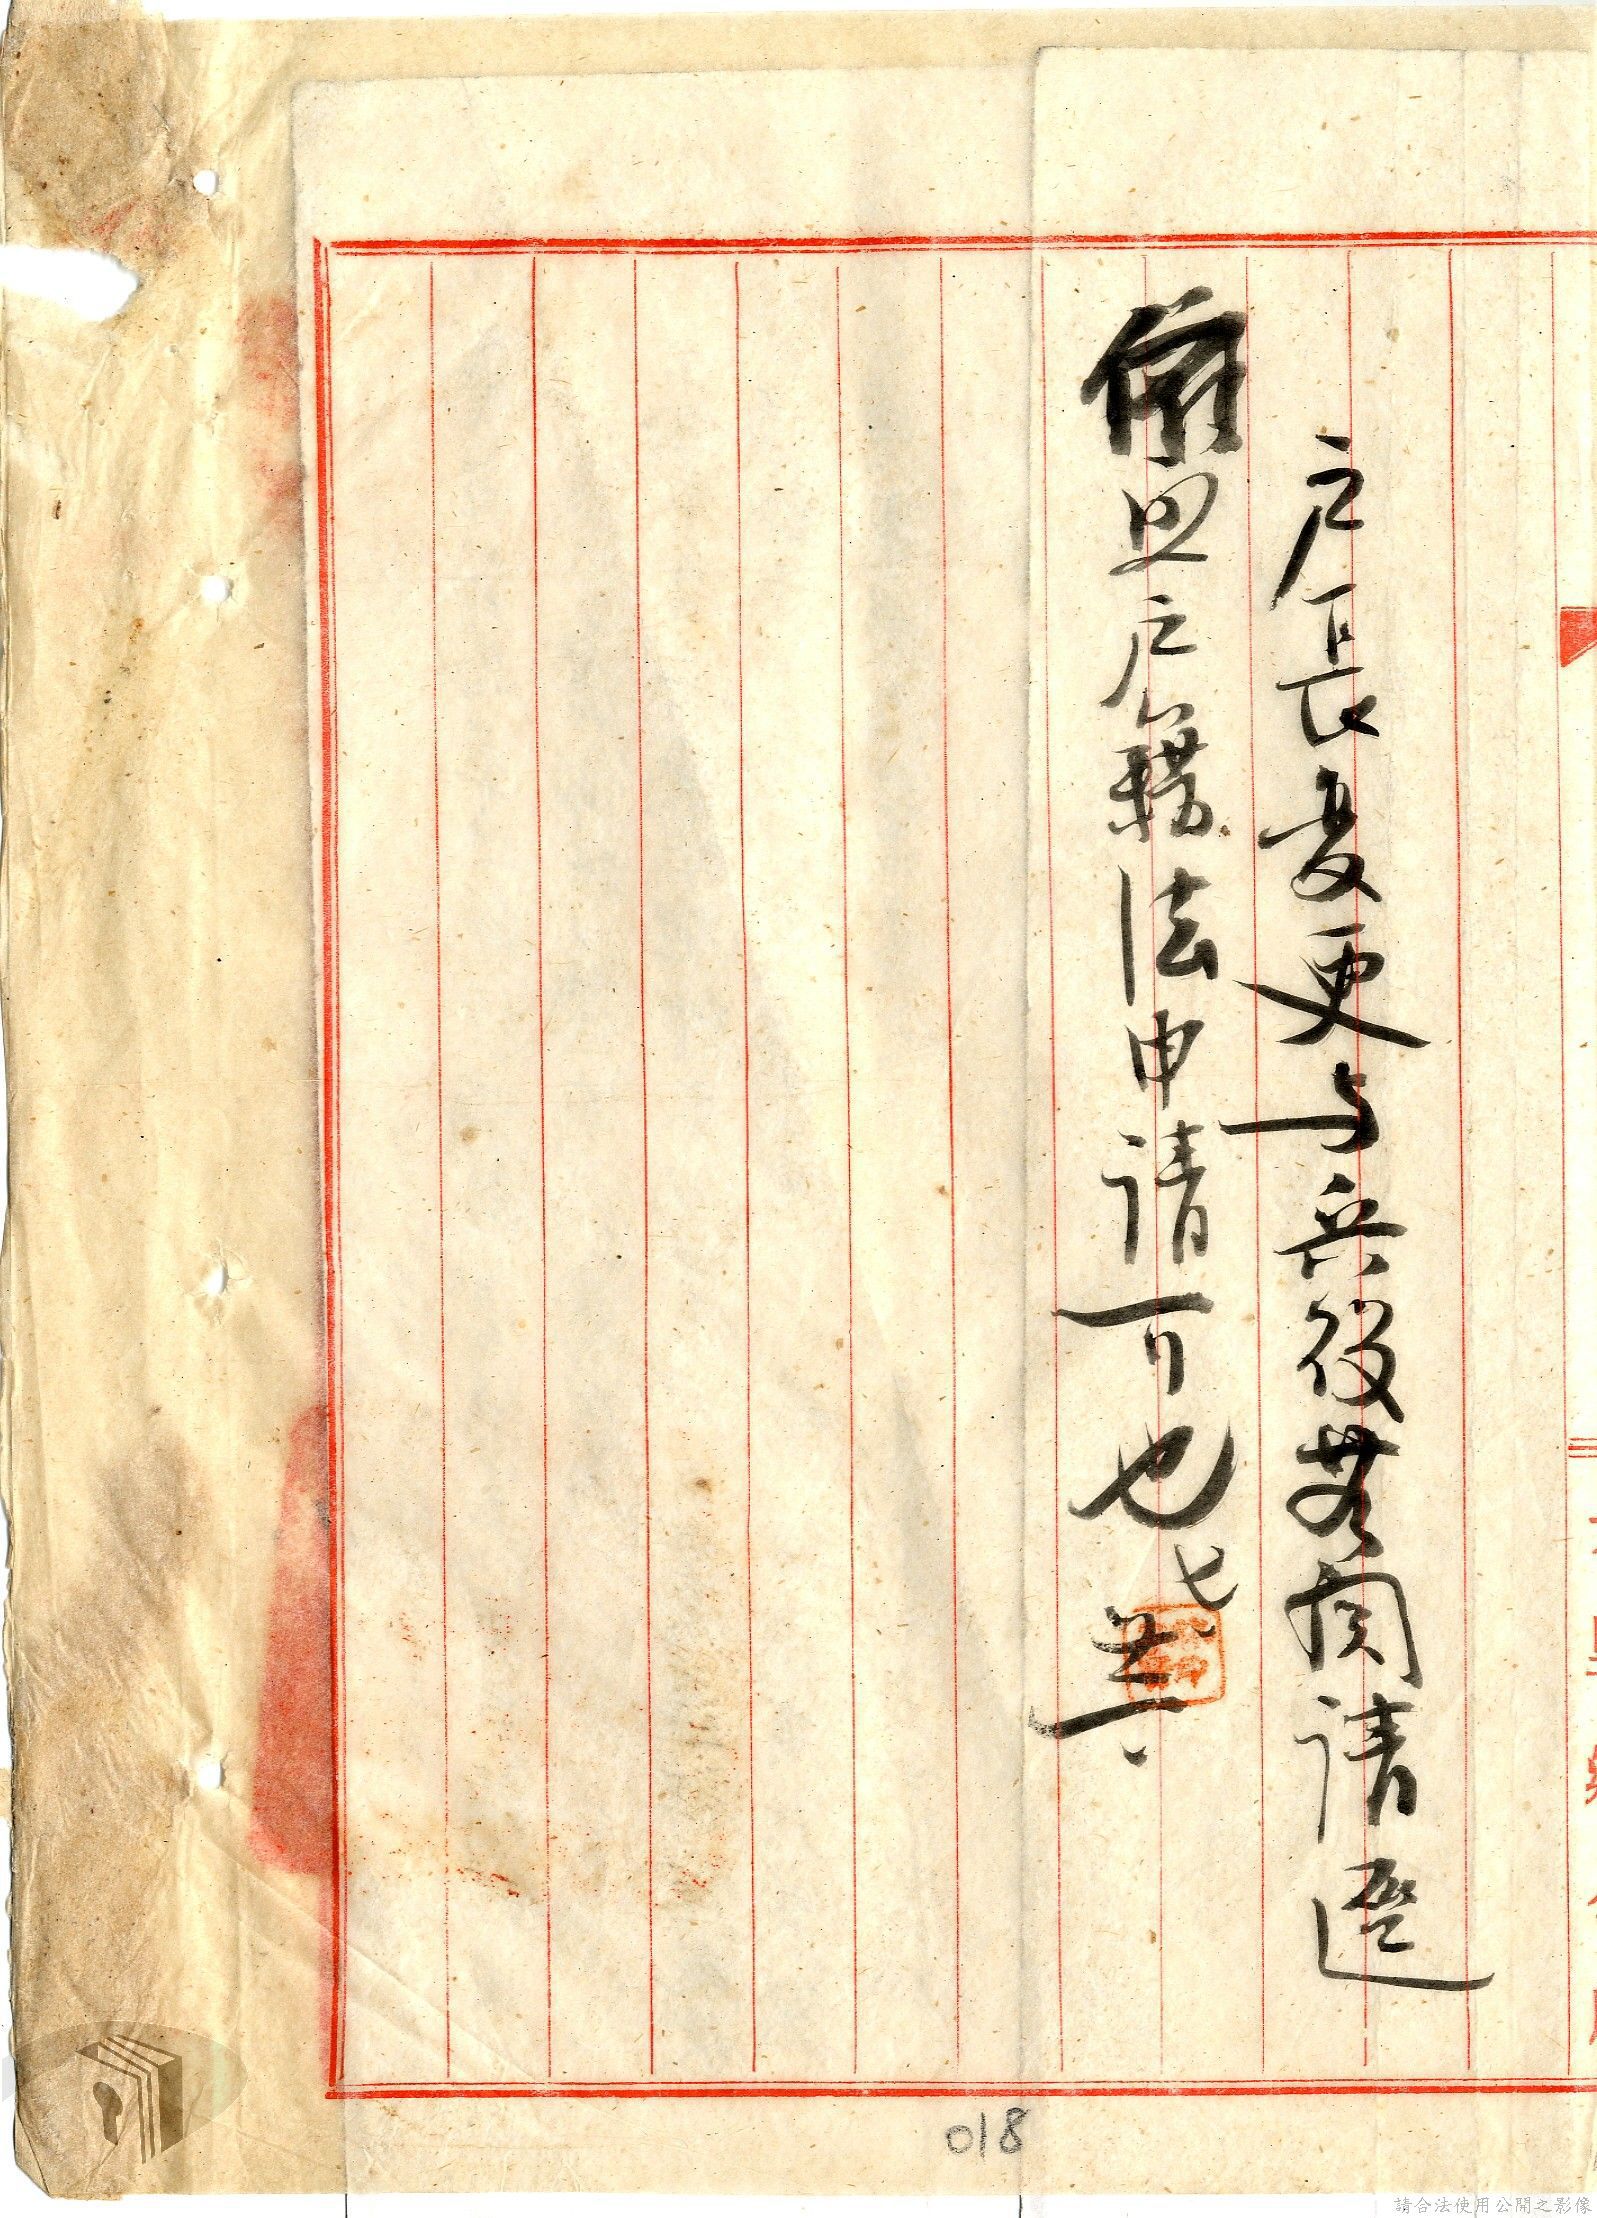 戶長变更与兵役無關請逕
依照戶籍法申請可也
七
018
請合法使用公開之影像